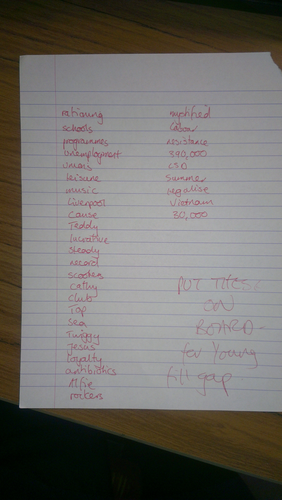 retraining
schools
programmes
unemployment
unions
leisure
music
Liverpool
Cause
Teddy
lucrative
steady
record
scooters
cathy
club
Top
sea
Twiggy
Jesus
Royalty
antibiotics
Alfie
rockers
mystified
labour
resistance
390,000
CSO
Summer
legalise
Vietnam
30,000
PUT THESE
ON
BOARD-
for Young
fill gap